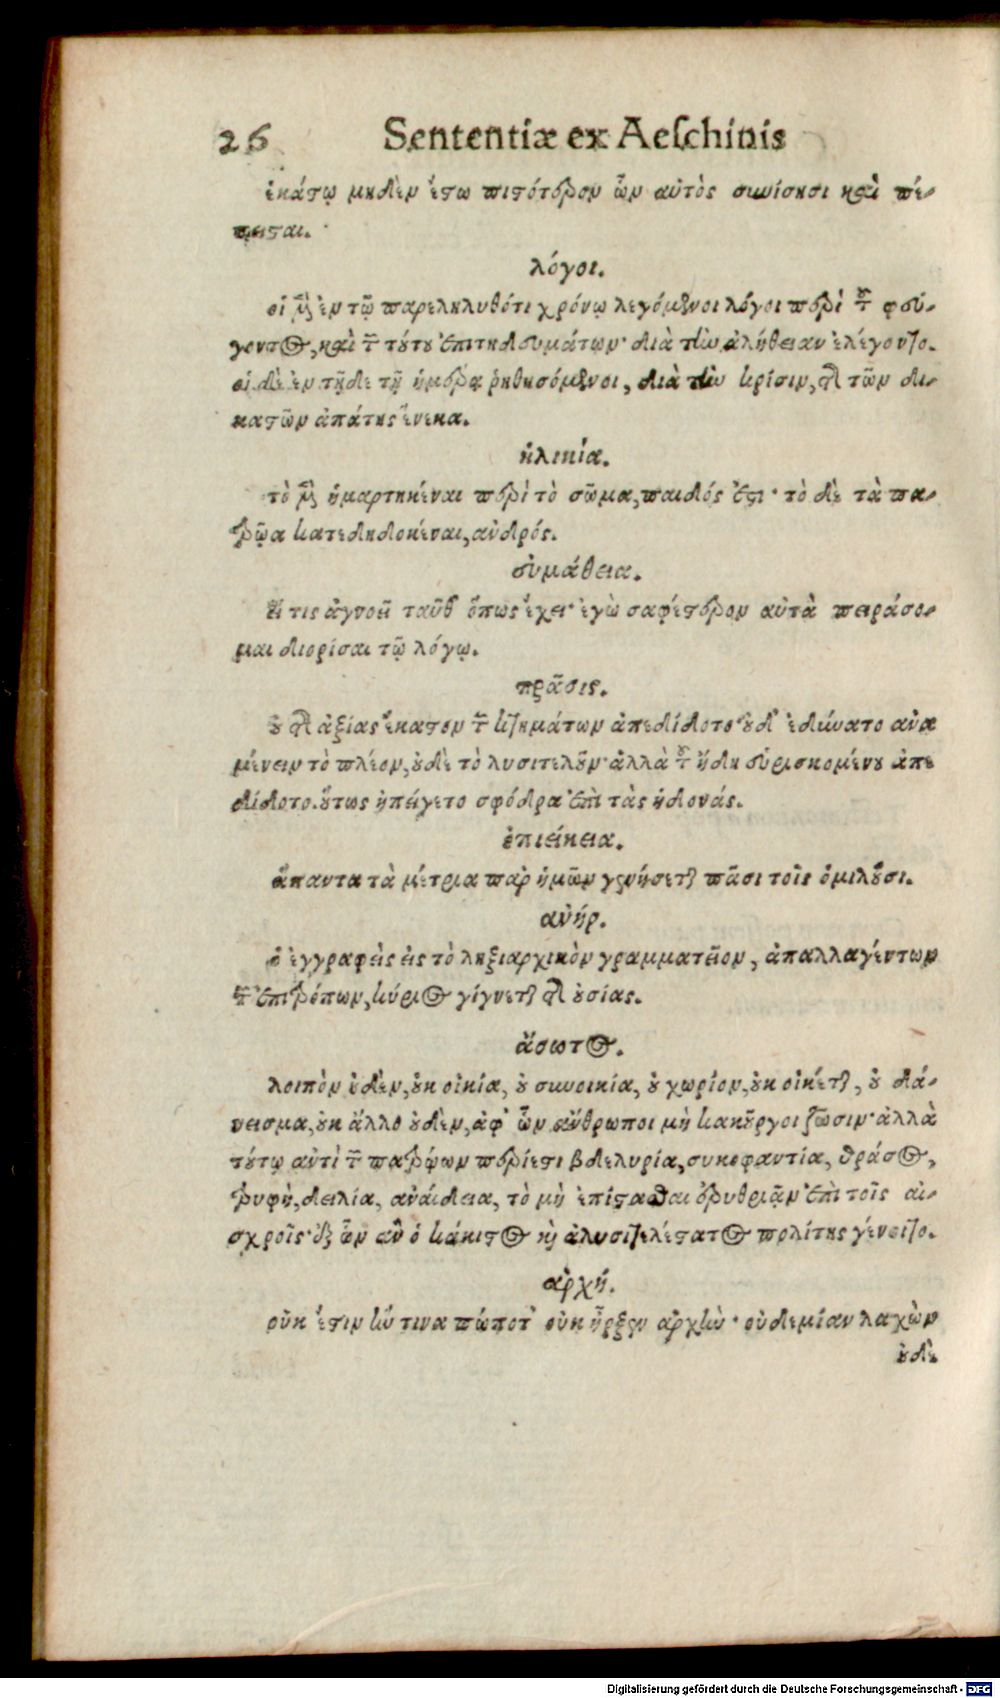 26 Sententiæ ex Aeſchinis
ἑκάστῳ μηδὲν ἔστω πιστότερον ὧν αὐτὸς σωίσησι καὶ πέ-
πεισται.
λόγοι.
οἱ μὲν ἐν τῷ παρεληλυθότι χρόνῳ λεγόμενοι λόγοι περὶ τοῦ φεύ-
γοντος, καὶ τῶν τούτου ἐπιτηδευμάτων· διὰ τὴν ἀλήθειαν ἐλέγοντο.
οἱ δὲ ἐν τῇδε τῇ ἡμέρᾳ ῥηθησόμενοι, διὰ τὴν κρίσιν, τῆς τῶν δι-
καστῶν ἀπάτης ἕνεκα.
ἡλικία.
τὸ μὲν ἡμαρτηκέναι περὶ τὸ σῶμα, παιδός ἐστι· τὸ δὲ τὰ πα-
τρῷα κατεδηδοκέναι, ἀνδρός.
εὐμάθεια.
Εἴ τις ἀγνοεῖ ταῦθ' ὅπως ἔχει· ἐγὼ σαφέστερον αὐτὰ πειράσο-
μαι διορίσαι τῷ λόγῳ.
πρᾶσις.
οὐ τῆς ἀξίας ἕκαστον τῶν κτημάτων ἀπεδίδοτο· οὐδ' ἐδύνατο ἀνα
μένειν τὸ πλέον, οὐδὲ τὸ λυσιτελοῦν· ἀλλὰ τοῦ ἤδη εὑρισκομένου ἀπε
δίδοτο. οὕτως ἠπείγετο σφόδρα ἐπὶ τὰς ἡδονάς.
ἐπιείκεια.
ἅπαντα τὰ μέτρια παρ' ἡμῶν γενήσεται πᾶσι τοῖς ὁμιλοῦσι.
ἀνήρ.
ὁ ἐγγραφεὶς εἰς τὸ ληξιαρχικὸν γραμματεῖον, ἀπαλλαγέντων
τῶν ἐπιτρόπων, κύριος γίγνεται τῆς οὐσίας.
ἄσωτος.
λοιπὸν οὐδὲν, οὐκ οἰκία, οὐ συνοικία, οὐ χωρίον, οὐκ οἰκέται, οὐ δά-
νεισμα, οὐκ ἄλλο οὐδὲν, ἀφ' ὧν ἄνθρωποι μὴ κακοῦργοι ζῶσιν· ἀλλὰ
τούτῳ ἀντὶ τῶν πατρῴων περίεστι βδελυρία, συκοφαντία, θράσος,
τρυφὴ, δειλία, ἀναίδεια, τὸ μὴ ἐπίστασθαι ἐρυθριᾷν ἐπὶ τοῖς αἰ-
σχροῖς· ἐξ ὧν ἂν ὁ κάκιστος καὶ ἀλυσιτελέστατος πολίτης γένοιτο.
ἀρχή.
οὐκ ἔστιν ἥν τινα πώποτ' οὐκ ἦρξεν ἀρχήν· οὐδεμίαν λαχὼν
οὐδὲ
Digitalisierung gefördert durch die Deutsche Forschungsgemeinschaft - DFG